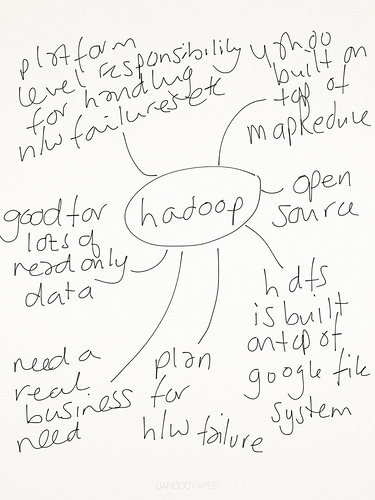 platform
level responsibility
for handling
h/w failures etc
yahoo
built on
top of
mapReduce
hadoop
open
source
good for
lots of
read only
data
hdfs
is built
ontop of
google file
system
need a
real
business
need
plan
for
h/w failure
BAMBOO PAPER